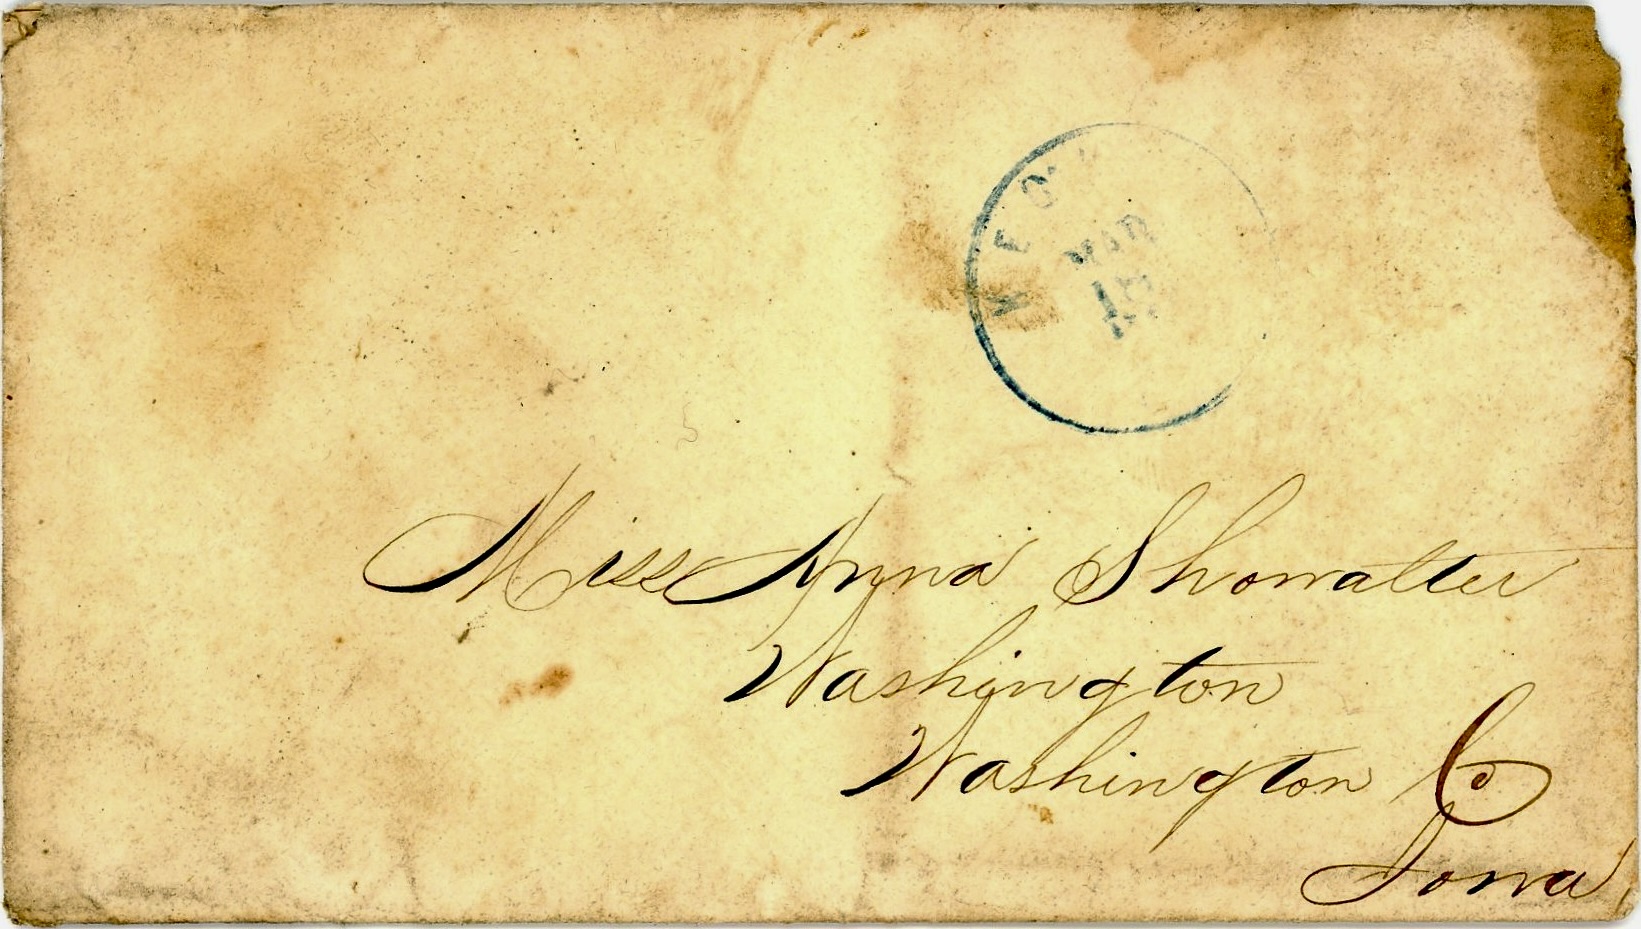 KEO
MAR
Miss Anna Showalter
Washington
Washington Co
Iowa